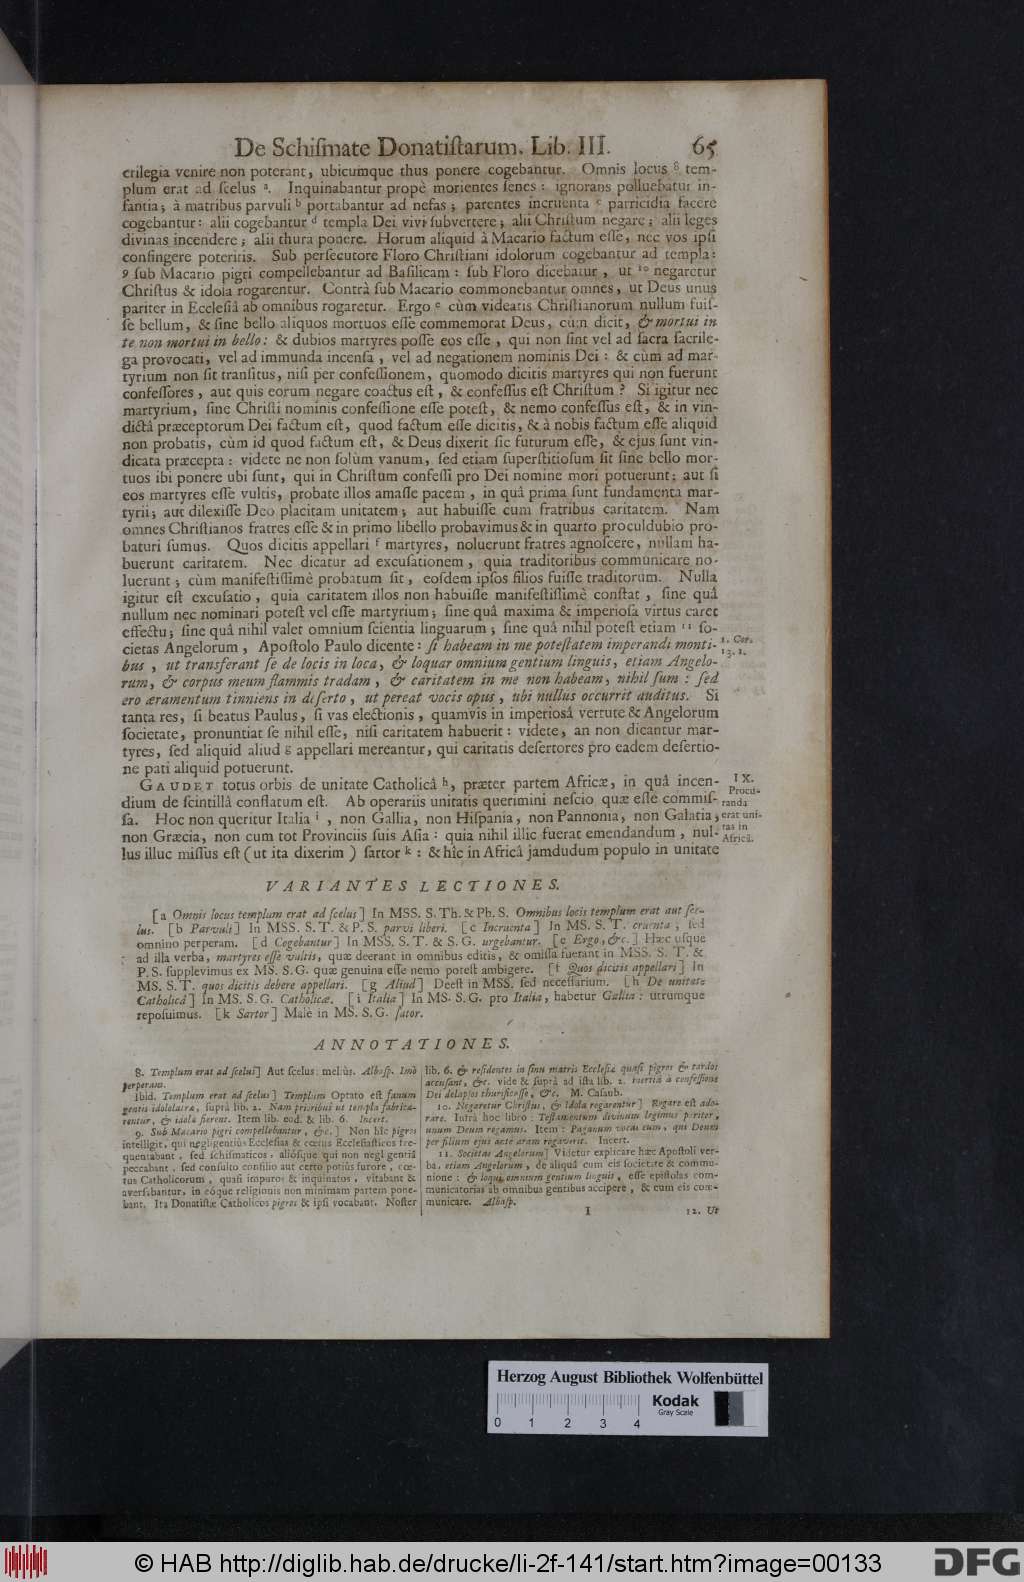 De Schiſmate Donatiſtarum. Lib. III. 65
crilegia venire non poterant, ubicumque thus ponere cogebantur. Omnis locus ⁸ tem-
plum erat ad ſcelus ª. Inquinabantur propè morientes ſenes: ignorans polluebatur in-
fantia; à matribus parvuli ᵇ portabantur ad nefas; parentes incruenta ᶜ parricidia facere
cogebantur: alii cogebantur ᵈ templa Dei vivi ſubvertere; alii Chriſtum negare; alii leges
divinas incendere; alii thura ponere. Horum aliquid à Macario factum eſſe, nec vos ipſi
confingere poteritis. Sub perſecutore Floro Chriſtiani idolorum cogebantur ad templa:
9 ſub Macario pigri compellebantur ad Baſilicam: ſub Floro dicebatur, ut ¹⁰ negaretur
Chriſtus & idola rogarentur. Contrà ſub Macario commonebantur omnes, ut Deus unus
pariter in Eccleſiâ ab omnibus rogaretur. Ergo ᵉ cùm videatis Chriſtianorum nullum fuiſ-
ſe bellum, & ſine bello aliquos mortuos eſſe commemorat Deus, cùm dicit, & mortui in
te non mortui in bello: & dubios martyres poſſe eos eſſe, qui non ſint vel ad ſacra ſacrile-
ga provocati, vel ad immunda incenſa, vel ad negationem nominis Dei: & cùm ad mar-
tyrium non ſit tranſitus, niſi per confeſſionem, quomodo dicitis martyres qui non fuerunt
confeſſores, aut quis eorum negare coactus eſt, & confeſſus eſt Chriſtum? Si igitur nec
martyrium, ſine Chriſti nominis confeſſione eſſe poteſt, & nemo confeſſus eſt, & in vin-
dictâ præceptorum Dei factum eſt, quod factum eſſe dicitis, & à nobis factum eſſe aliquid
non probatis, cùm id quod factum eſt, & Deus dixerit ſic futurum eſſe, & ejus ſunt vin-
dicata præcepta: videte ne non ſolùm vanum, ſed etiam ſuperſtitioſum ſit ſine bello mor-
tuos ibi ponere ubi ſunt, qui in Chriſtum confeſſi pro Dei nomine mori potuerunt: aut ſi
eos martyres eſſe vultis, probate illos amaſſe pacem, in quâ prima ſunt fundamenta mar-
tyrii; aut dilexiſſe Deo placitam unitatem; aut habuiſſe cum fratribus caritatem. Nam
omnes Chriſtianos fratres eſſe & in primo libello probavimus & in quarto proculdubio pro-
baturi ſumus. Quos dicitis appellari ᶠ martyres, noluerunt fratres agnoſcere, nullam ha-
buerunt caritatem. Nec dicatur ad excuſationem, quia traditoribus communicare no-
luerunt; cùm manifeſtiſſimè probatum ſit, eoſdem ipſos filios fuiſſe traditorum. Nulla
igitur eſt excuſatio, quia caritatem illos non habuiſſe manifeſtiſſimè conſtat, ſine quâ
nullum nec nominari poteſt vel eſſe martyrium; ſine quâ maxima & imperioſa virtus caret
effectu; ſine quâ nihil valet omnium ſcientia linguarum; ſine quâ nihil poteſt etiam ¹¹ ſo-
cietas Angelorum, Apoſtolo Paulo dicente: ſi habeam in me poteſtatem imperandi monti-
1. Cor.
13. 1.
bus, ut transferant ſe de locis in loca, & loquar omnium gentium linguis, etiam Angelo-
rum, & corpus meum flammis tradam, & caritatem in me non habeam, nihil ſum: ſed
ero æramentum tinniens in deſerto, ut pereat vocis opus, ubi nullus occurrit auditus. Si
tanta res, ſi beatus Paulus, ſi vas electionis, quamvis in imperioſâ vertute & Angelorum
ſocietate, pronuntiat ſe nihil eſſe, niſi caritatem habuerit: videte, an non dicantur mar-
tyres, ſed aliquid aliud ᵍ appellari mereantur, qui caritatis deſertores pro eadem deſertio-
ne pati aliquid potuerunt.
GAUDET totus orbis de unitate Catholicâ ʰ, præter partem Africæ, in quâ incen-
dium de ſcintillâ conflatum eſt. Ab operariis unitatis querimini neſcio quæ eſſe commiſ-
ſa. Hoc non queritur Italia ⁱ, non Gallia, non Hiſpania, non Pannonia, non Galatia,
non Græcia, non cum tot Provinciis ſuis Aſia: quia nihil illic fuerat emendandum, nul-
lus illuc miſſus eſt (ut ita dixerim) ſartor ᵏ: & hîc in Africâ jamdudum populo in unitate
IX.
Procu-
randa
erat uni-
tas in
Africâ.
VARIANTES LECTIONES.
[a Omnis locus templum erat ad ſcelus] In MSS. S. Th. & Ph. S. Omnibus locis templum erat aut ſce-
lus. [b Parvuli] In MSS. S. T. & P. S. parvi liberi. [c Incruenta] In MS. S. T. cruenta, ſed
omnino perperam. [d Cogebantur] In MSS. S. T. & S. G. urgebantur. [e Ergo, &c.] Hæc uſque
ad illa verba, martyres eſſe vultis, quæ deerant in omnibus editis, & omiſſa fuerant in MSS. S. T. &
P. S. ſupplevimus ex MS. S. G. quæ genuina eſſe nemo poteſt ambigere. [f Quos dicitis appellari] In
MS. S. T. quos dicitis debere appellari. [g Aliud] Deeſt in MSS. ſed neceſſarium. [h De unitate
Catholicâ] In MS. S. G. Catholicæ. [i Italia] In MS. S. G. pro Italia, habetur Gallia: utrumque
repoſuimus. [k Sartor] Malè in MS. S. G. ſator.
ANNOTATIONES.
8. Templum erat ad ſcelus] Aut ſcelus: meliùs. Albaſp. Imò
perperam.
Ibid. Templum erat ad ſcelus] Templum Optato eſt fanum
gentis idololatræ, ſuprà lib. 2. Nam prioribus ut templa fabrica-
rentur, & idola fierent. Item lib. eod. & lib. 6. Incert.
9. Sub Macario pigri compellebantur, &c.] Non hîc pigros
intelligit, qui negligentiùs Eccleſias & cœtus Eccleſiaſticos fre-
quentabant, ſed ſchiſmaticos, alióſque qui non negligentiâ
peccabant, ſed conſulto conſilio aut certo potiùs furore, cœ-
tus Catholicorum, quaſi impuros & inquinatos, vitabant &
averſabantur, in eóque religionis non minimam partem pone-
bant. Ita Donatiſtæ Catholicos pigros & ipſi vocabant. Noſter
lib. 6. & reſidentes in ſinu matris Eccleſiæ quaſi pigros & tardos
accuſant, &c. vide & ſuprà ad iſta lib. 2. inertiâ à confeſſione
Dei delapſos thurificaſſe, &c. M. Caſaub.
10. Negaretur Chriſtus, & Idola rogarentur] Rogare eſt ado-
rare. Infrà hoc libro: Teſtamentum divinum legimus pariter,
unum Deum rogamus. Item: Paganum vocas eum, qui Deum
per filium ejus ante aram rogaverit. Incert.
11. Societas Angelorum] Videtur explicare hæc Apoſtoli ver-
ba, etiam Angelorum, de aliquâ cum eis ſocietate & commu-
nione: & loqui omnium gentium linguis, eſſe epiſtolas com-
municatorias ab omnibus gentibus accipere, & cum eis com-
municare. Albaſp.
I
12. Ut
Herzog August Bibliothek Wolfenbüttel
Kodak
Gray Scale
0 1 2 3 4
© HAB http://diglib.hab.de/drucke/li-2f-141/start.htm?image=00133
DFG